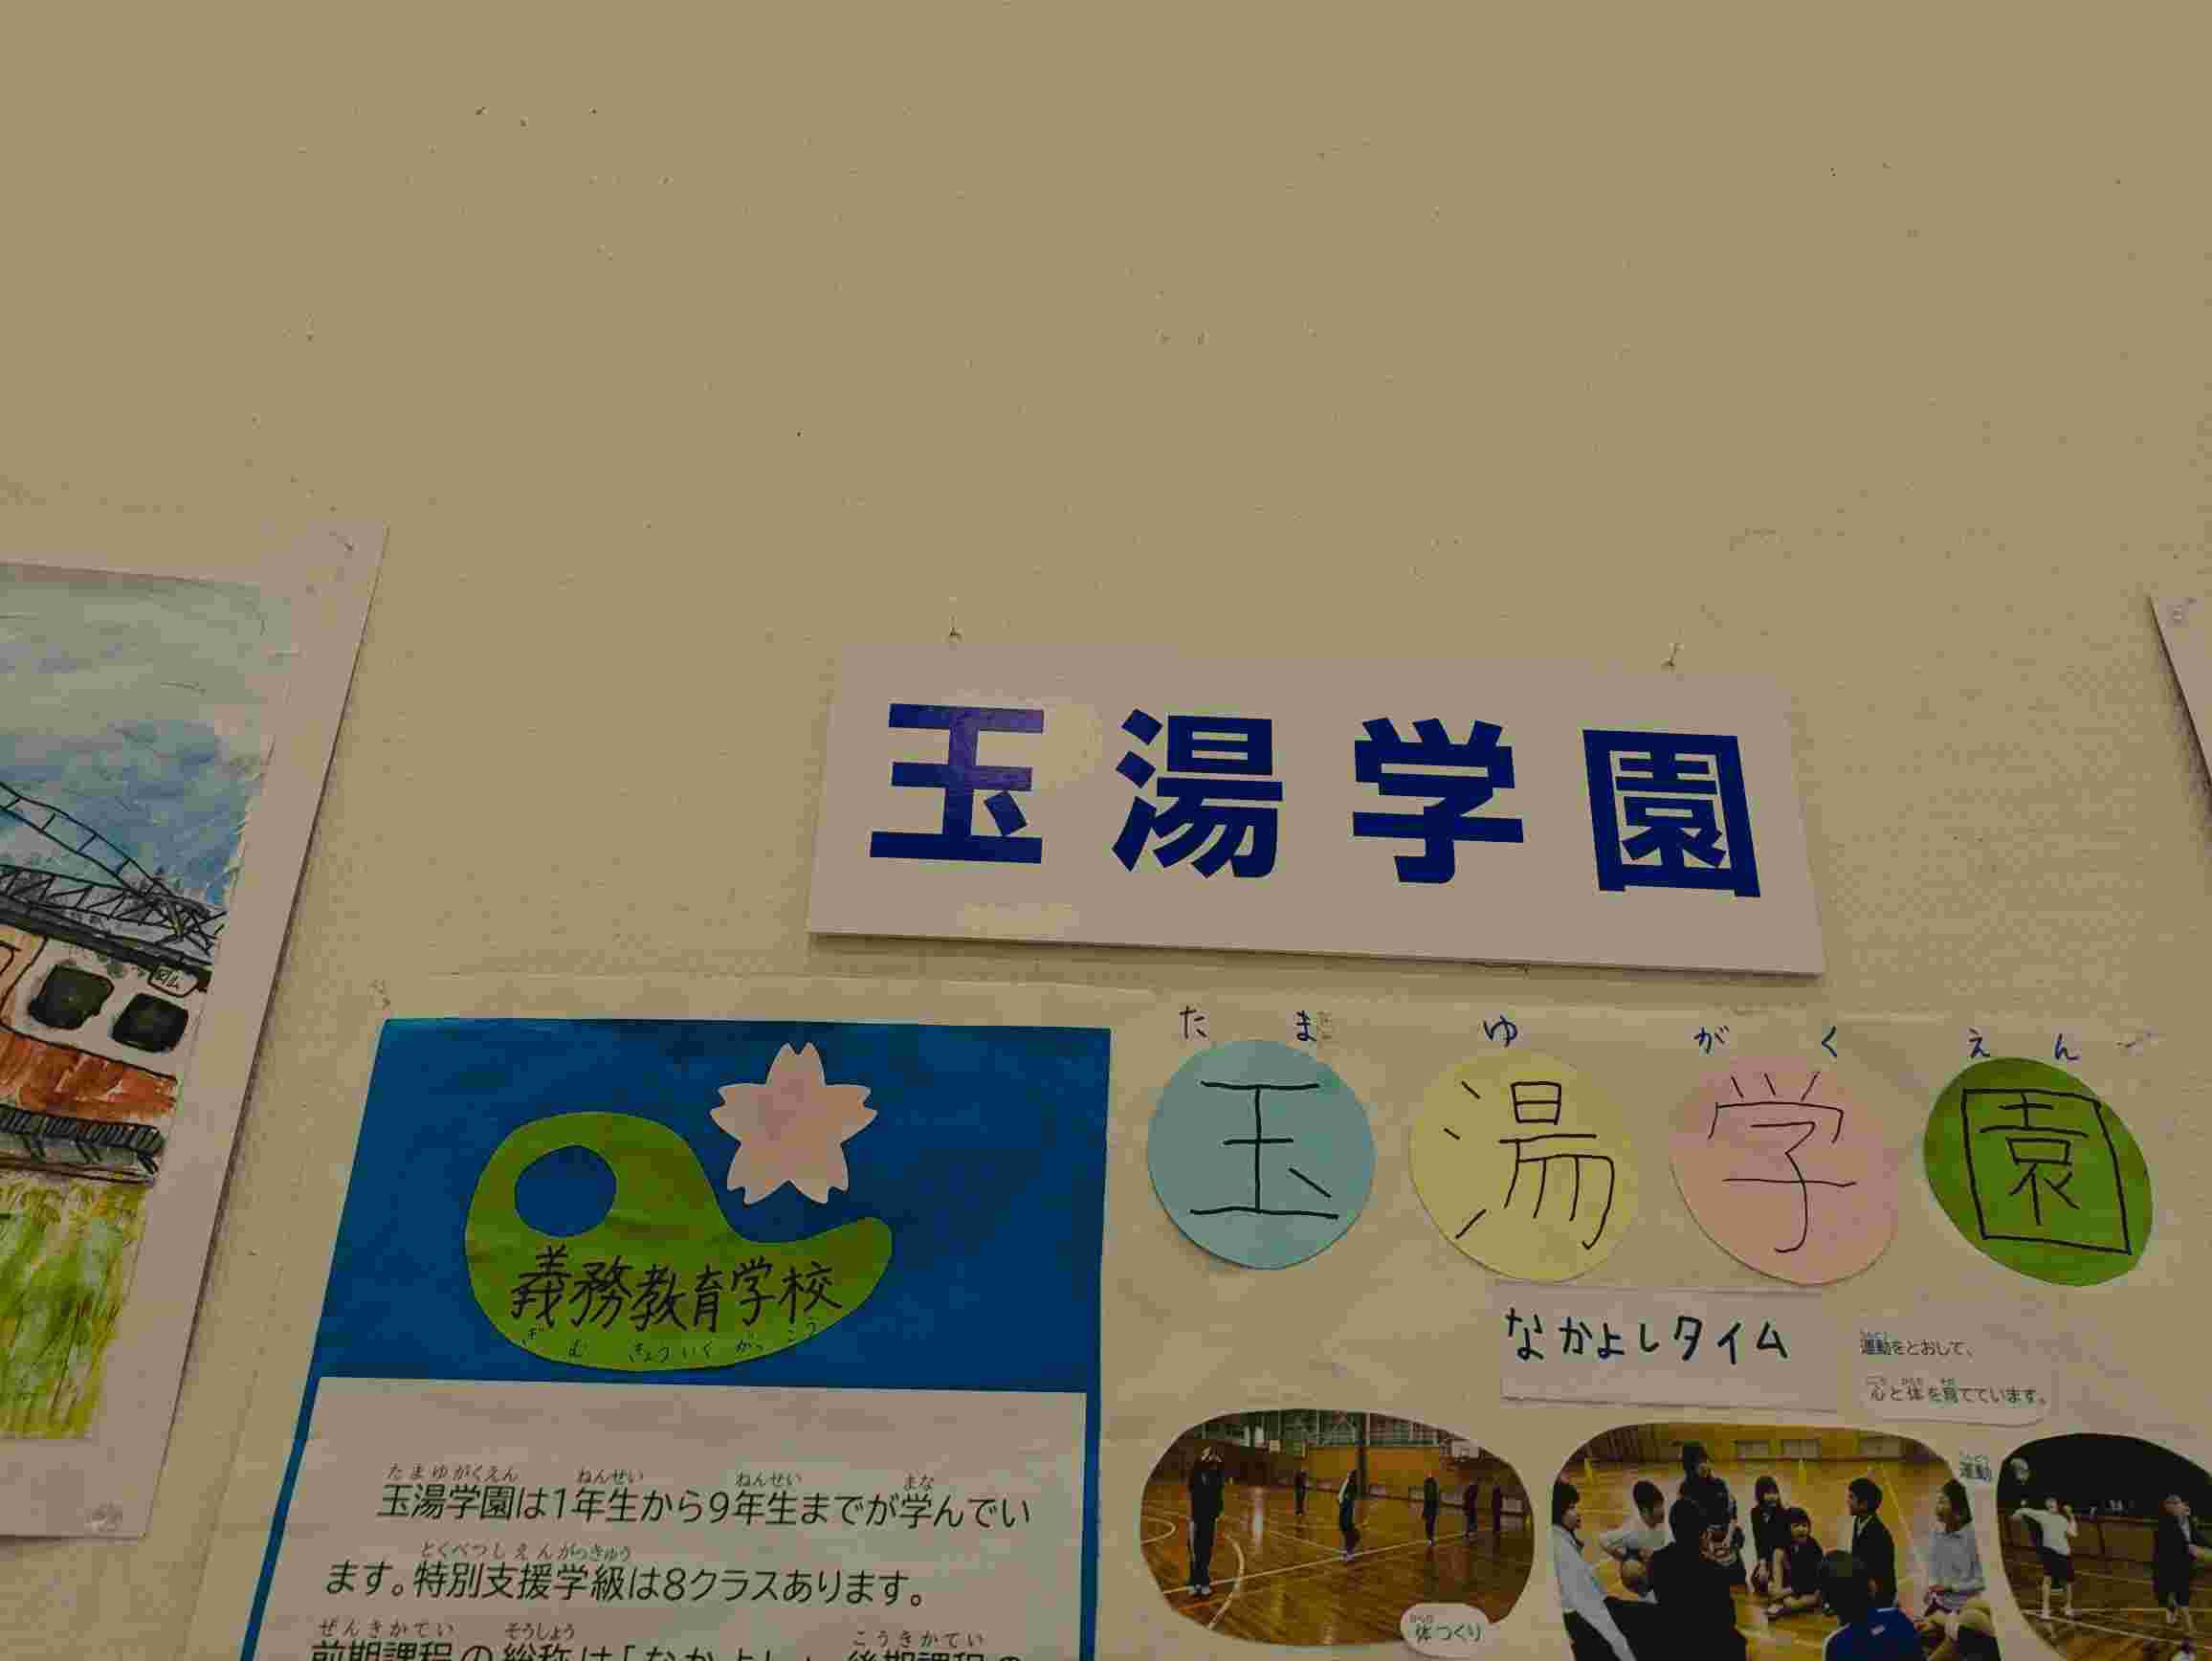 玉湯学園
た ま ゆ が く え ん
玉湯学園
義務教育学校
ぎ む きょういく がっこう
なかよしタイム
運動をとおして、
心と体を育てています。
たまゆがくえん ねんせい ねんせい まな
玉湯学園は1年生から9年生までが学んでい
とくべつしえんがっきゅう
ます。特別支援学級は8クラスあります。
ぜんきかてい そうしょう こうきかてい
前期課程の総称は「なかよし」、後期課程の
体つくり
運動